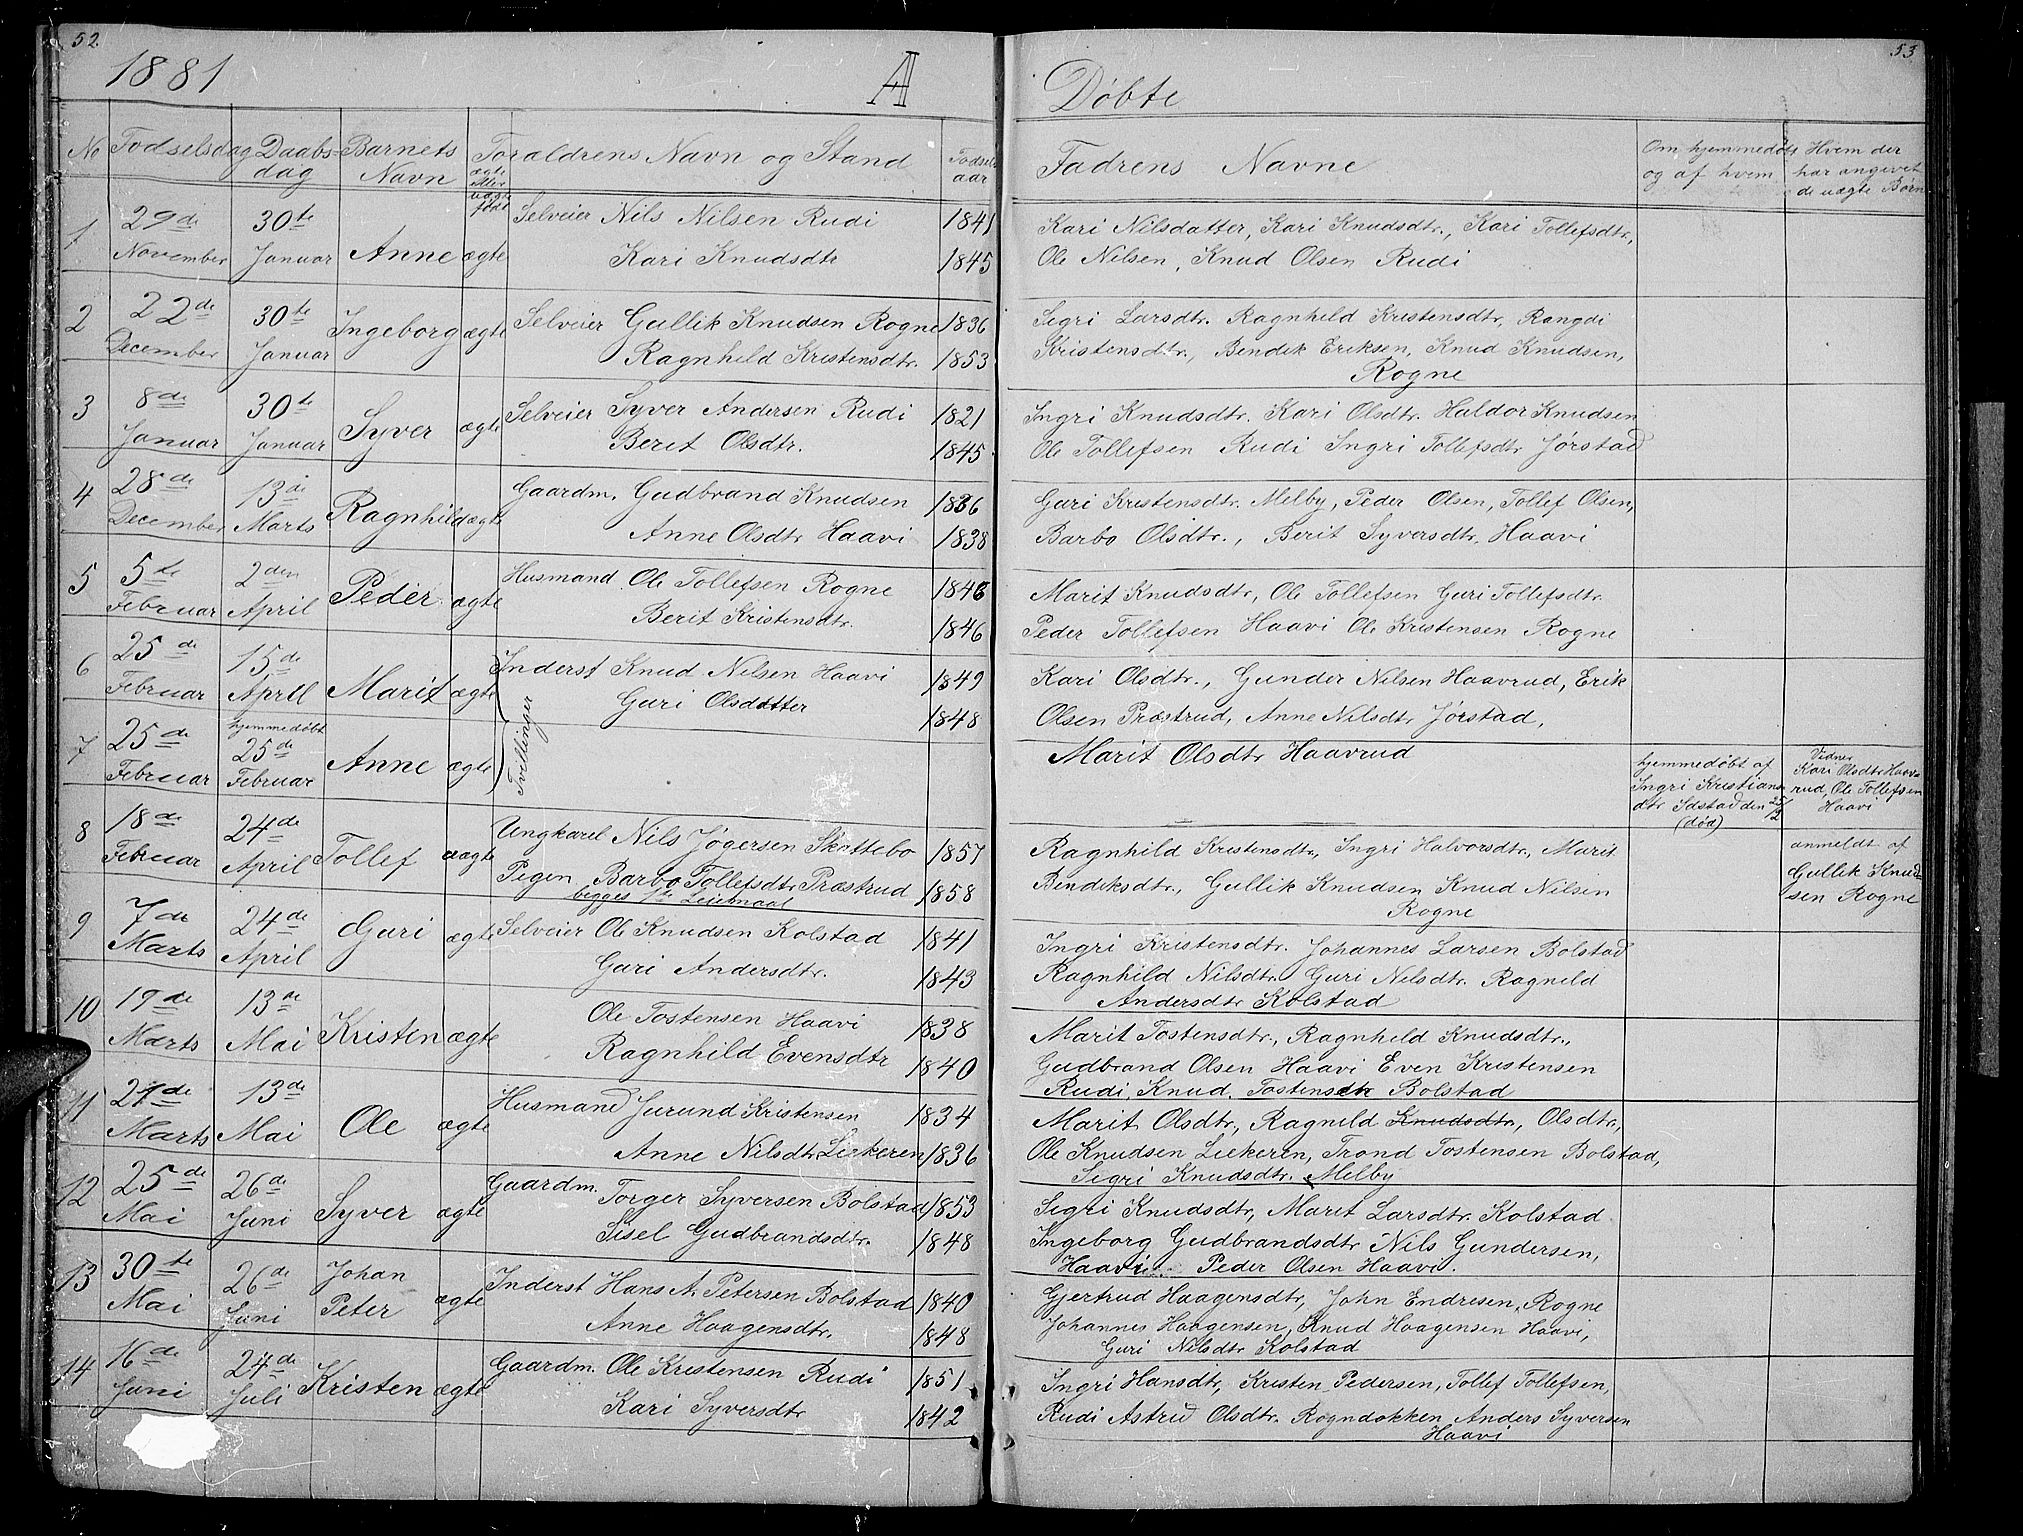 52.
1881
A
No Fodselsdag Daabs-dag Barnets Navn ægte eller uægte født Foraldrens Navn og Stand Fodsels aar
1 29de November 30te Januar Anne ægte Selveier Nils Nilsen Rudi 1841
Kari Knudsdtr 1845
2 22de December 30te Januar Ingeborg ægte Selveier Gullik Knudsen Rogne 1836
Ragnhild Kristensdtr. 1853
3 8de Januar 30te Januar Syver ægte Selveier Syver Andersen Rudi 1821
Berit Olsdtr. 1845
4 28de December 13de Marts Ragnhild ægte Gaardm. Gudbrand Knudsen 1836
Anne Olsdtr Haavi 1838
5 5te Februar 2den April Peder ægte Husmand Ole Tollefsen Rogne 1846
Berit Kristensdtr. 1846
6 25de Februar 15de April Marit ægte Inderst Knud Nilsen Haavi 1849
Guri Olsdatter 1848
Tvillinger
7 25de Februar hjemmedøbt 25de Februar Anne ægte
8 18de Februar 24de April Tollef uægte Ungkarel Nils Jøgersen Skattebo 1857
Pigen Barbo Tollefsdtr Præstrud 1858
begges 1ste Leiermaal
9 7de Marts 24de April Guri ægte Selveier Ole Knudsen Kolstad 1841
Guri Andersdtr. 1843
10 19de Marts 13de Mai Kristen ægte Ole Tostensen Haavi 1838
Ragnhild Evensdtr 1840
11 27de Marts 13de Mai Ole ægte Husmand Jurund Kristensen 1834
Anne Nilsdtr Liekeren 1836
12 25de Mai 26de Juni Syver ægte Gaardm. Torger Syversen Bolstad 1853
Sisel Gudbrandsdtr. 1848
13 30te Mai 26de Juni Johan Peter ægte Inderst Hans A. Petersen Bolstad 1840
Anne Haagensdtr. 1848
14 16de Juni 24de Juli Kristen ægte Gaardm. Ole Kristensen Rudi 1851
Kari Syversdtr 1842
53
Døbte
Fadrens Navne
Om hjemmedøbt og af hvem
Hvem der har angivet de uægte Børn
Kari Nilsdatter, Kari Knudsdtr., Kari Tollefsdtr,
Ole Nilsen, Knud Olsen Rudi
Sigri Larsdtr. Ragnhild Kristensdtr, Rangdi
Kristensdtr., Bendik Eriksen, Knud Knudsen,
Rogne
Ingri Knudsdtr. Kari Olsdtr. Haldor Knudsen
Ole Tollefsen Rudi Ingri Tollefsdtr Jørstad
Guri Kristensdtr. Melby, Peder Olsen, Tollef Olsen,
Barbo Olsdtr., Berit Syversdtr. Haavi
Marit Knudsdtr, Ole Tollefsen Guri Tollefsdtr.
Peder Tollefsen Haavi Ole Kristensen Rogne
Kari Olsdtr., Gunder Nilsen Haavrud, Erik
Olsen Præstrud, Anne Nilsdtr Jørstad,
Marit Olsdtr Haavrud
hjemmedøbt af
Ingri Kristians
dtr Idstad den 25/2
(død)
Vidner
Kari Olsdtr Haav-
rud, Ole Tollefsen
Haavi
Ragnhild Kristensdtr., Ingri Halvorsdtr., Marit
Bendiksdtr., Gullik Knudsen Knud Nilsen
Rogne
anmeldt af
Gullik Knud-
sen Rogne
Ingri Kristensdtr. Johannes Larsen Bolstad
Ragnhild Nilsdtr. Guri Nilsdtr. Ragnild
Andersdtr Kolstad
Marit Tostensdtr., Ragnhild Knudsdtr.,
Gudbrand Olsen Haavi Even Kristensen
Rudi, Knud Tostensen Bolstad
Marit Olsdtr., Ragnild Knudsdtr, Olsdtr.,
Ole Knudsen Liekeren, Trond Tostensen Bolstad,
Sigri Knudsdtr. Melby
Sigri Knudsdtr, Marit Larsdtr. Kolstad
Ingeborg Gudbrandsdtr Nils Gundersen,
Haavi. Peder Olsen Haavi.
Gjertrud Haagensdtr, John Endresen, Rogne
Johannes Haagensen, Knud Haagensen Haavi,
Guri Nilsdtr Kolstad
Ingri Hansdtr, Kristen Pedersen, Tollef Tollefsen,
Rudi Astrid Olsdtr. Rogndokken Anders Syversen
Haavi